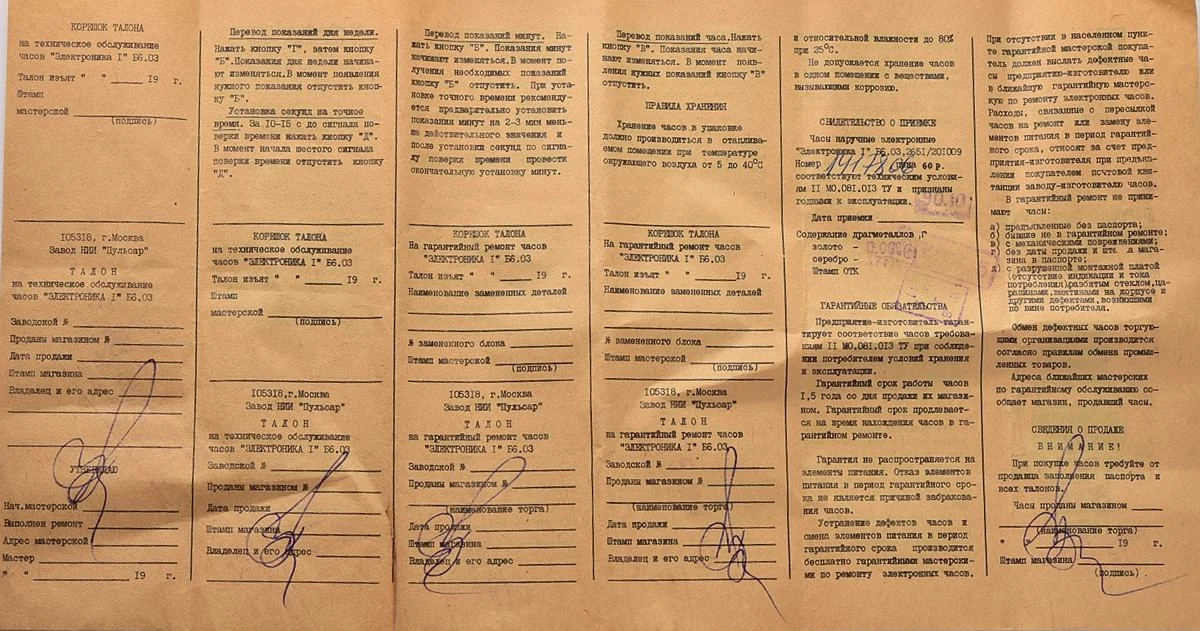 КОРЕШОК ТАЛОНА
на техническое обслуживание
часов "Электроника I" Б6.03
Талон изъят " " 19 г.
Штамп
мастерской
(подпись)
105318, г.Москва
Завод НИИ "Пульсар"
ТАЛОН
на техническое обслуживание
часов "ЭЛЕКТРОНИКА I" Б6.03
Заводской №
Проданы магазином №
Дата продажи
Штамп магазина
Владелец и его адрес
УТВЕРЖДАЮ
Нач.мастерской
Выполнен ремонт
Адрес мастерской
Мастер
" " 19 г.
Перевод показаний дня недели.
Нажать кнопку "Г", затем кнопку
"Б". Показания дня недели начина-
ют изменяться. В момент появления
нужного показания отпустить кноп-
ку "Б".
Установка секунд на точное
время. За 10-15 с до сигнала по-
верки времени нажать кнопку "Д".
В момент начала шестого сигнала
поверки времени отпустить кнопку
"Д".
КОРЕШОК ТАЛОНА
на техническое обслуживание
часов "ЭЛЕКТРОНИКА I" Б6.03
Талон изъят " " 19 г.
Штамп
мастерской
(подпись)
105318, г.Москва
Завод НИИ "Пульсар"
ТАЛОН
на техническое обслуживание
часов "ЭЛЕКТРОНИКА I" Б6.03
Заводской №
Проданы магазином №
Дата продажи
Штамп магазина
Владелец и его адрес
Перевод показаний минут. На-
жать кнопку "Б". Показания минут
начинают изменяться. В момент по-
лучения необходимых показаний
кнопку "Б" отпустить. При уста-
новке точного времени рекоменду-
ется предварительно установить
показания минут на 2-3 мин мень-
ше действительного значения и
после установки секунд по сигна-
лу поверки времени провести
окончательную установку минут.
КОРЕШОК ТАЛОНА
на гарантийный ремонт часов
"ЭЛЕКТРОНИКА I" Б6.03
Талон изъят " " 19 г.
Наименование замененных деталей
№ замененного блока
Штамп мастерской
(подпись)
105318, г.Москва
Завод НИИ "Пульсар"
ТАЛОН
на гарантийный ремонт часов
"ЭЛЕКТРОНИКА I" Б6.03
Заводской №
Проданы магазином №
(наименование торга)
Дата продажи
Штамп магазина
Владелец и его адрес
Перевод показаний часа. Нажать
кнопку "В". Показания часа начи-
нают изменяться. В момент появ-
ления нужных показаний кнопку "В"
отпустить.
ПРАВИЛА ХРАНЕНИЯ
Хранение часов в упаковке
должно производиться в отаплива-
емом помещении при температуре
окружающего воздуха от 5 до 40°С
КОРЕШОК ТАЛОНА
на гарантийный ремонт часов
"ЭЛЕКТРОНИКА I" Б6.03
Талон изъят " " 19 г.
Наименование замененных деталей
№ замененного блока
Штамп мастерской
(подпись)
105318, г.Москва
Завод НИИ "Пульсар"
ТАЛОН
на гарантийный ремонт часов
"ЭЛЕКТРОНИКА I" Б6.03
Заводской №
Проданы магазином №
(наименование торга)
Дата продажи
Штамп магазина
Владелец и его адрес
и относительной влажности до 80%
при 25°С.
Не допускается хранение часов
в одном помещении с веществами,
вызывающими коррозию.
СВИДЕТЕЛЬСТВО О ПРИЕМКЕ
Часы наручные электронные
"Электроника I" Б6.03.265I/201009
Номер цена 60 р.
соответствуют техническим услови-
ям II М0.081.013 ТУ и признаны
годными к эксплуатации.
90.10
Дата приемки
Содержание драгметаллов, г
золото -
серебро -
Штамп ОТК
ГАРАНТИЙНЫЕ ОБЯЗАТЕЛЬСТВА
Предприятие-изготовитель гаран-
тирует соответствие часов требова-
ниям II М0.081.013 ТУ при соблюде-
нии потребителем условий хранения
и эксплуатации.
Гарантийный срок работы часов
1,5 года со дня продажи их магази-
ном. Гарантийный срок продлевает-
ся на время нахождения часов в га-
рантийном ремонте.
Гарантия не распространяется на
элементы питания. Отказ элементов
питания в период гарантийного сро-
ка не является причиной забракова-
ния часов.
Устранение дефектов часов и
смена элементов питания в период
гарантийного срока производится
бесплатно гарантийными мастерски-
ми по ремонту электронных часов.
При отсутствии в населенном пунк-
те гарантийной мастерской покупа-
тель должен выслать дефектные ча-
сы предприятию-изготовителю или
в ближайшую гарантийную мастерс-
кую по ремонту электронных часов.
Расходы, связанные с пересылкой
часов на ремонт или замену эле-
ментов питания в период гарантий-
ного срока, относят за счет пред-
приятия-изготовителя при предъяв-
лении покупателем почтовой кви-
танции заводу-изготовителю часов.
В гарантийный ремонт не прини-
мают часы:
а) предъявленные без паспорта;
б) бывшие не в гарантийном ремонте;
в) с механическими повреждениями;
без даты продажи и штампа мага-
зина в паспорте;
с разрушенной монтажной платой
(отсутствие индикации и тока
потребления) разбитым стеклом, ца-
рапинами, вмятинами на корпусе и
другими дефектами, возникшими
по вине потребителя.
Обмен дефектных часов торгую-
щими организациями производится
согласно правилам обмена промыш-
ленных товаров.
Адреса ближайших мастерских
по гарантийному обслуживанию со-
общает магазин, продавший часы.
СВЕДЕНИЯ О ПРОДАЖЕ
ВНИМАНИЕ!
При покупке часов требуйте от
продавца заполнения паспорта и
всех талонов.
Часы проданы магазином
(наименование торга)
" " 19 г.
Штамп магазина
(подпись)